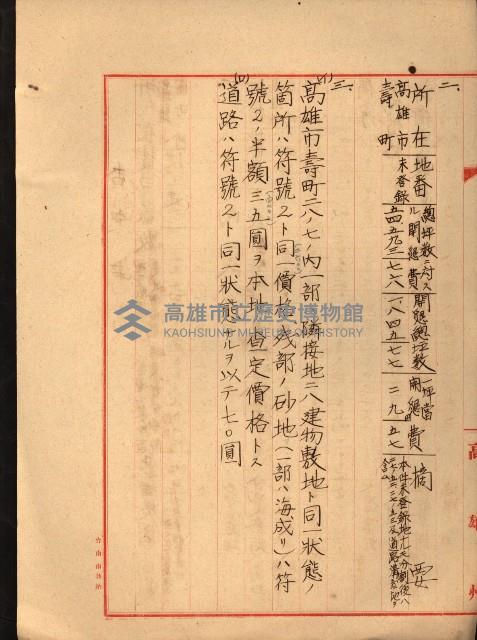 二、
所在
地番
總坪數ニ対スル開墾費
開墾總坪數
一坪當開墾費
摘要
高雄市壽町
未登錄
五四、五九三、七六
一八四五七七
二九五七
三、
(イ)高雄市壽町二八ノ七ノ內一部 隣接地二八建物敷地ト同一狀態ノ
箇所ハ符號2ト同一價格 残部ノ砂地(一部ハ海成リ)ハ符
號2ノ半額三五圓ヲ本地ノ査定價格トス
(ロ)道路ハ符號2ト同一狀態ナルヲ以テ七〇圓
高雄州
高雄市立歷史博物館
KAOHSIUNG MUSEUM OF HISTORY